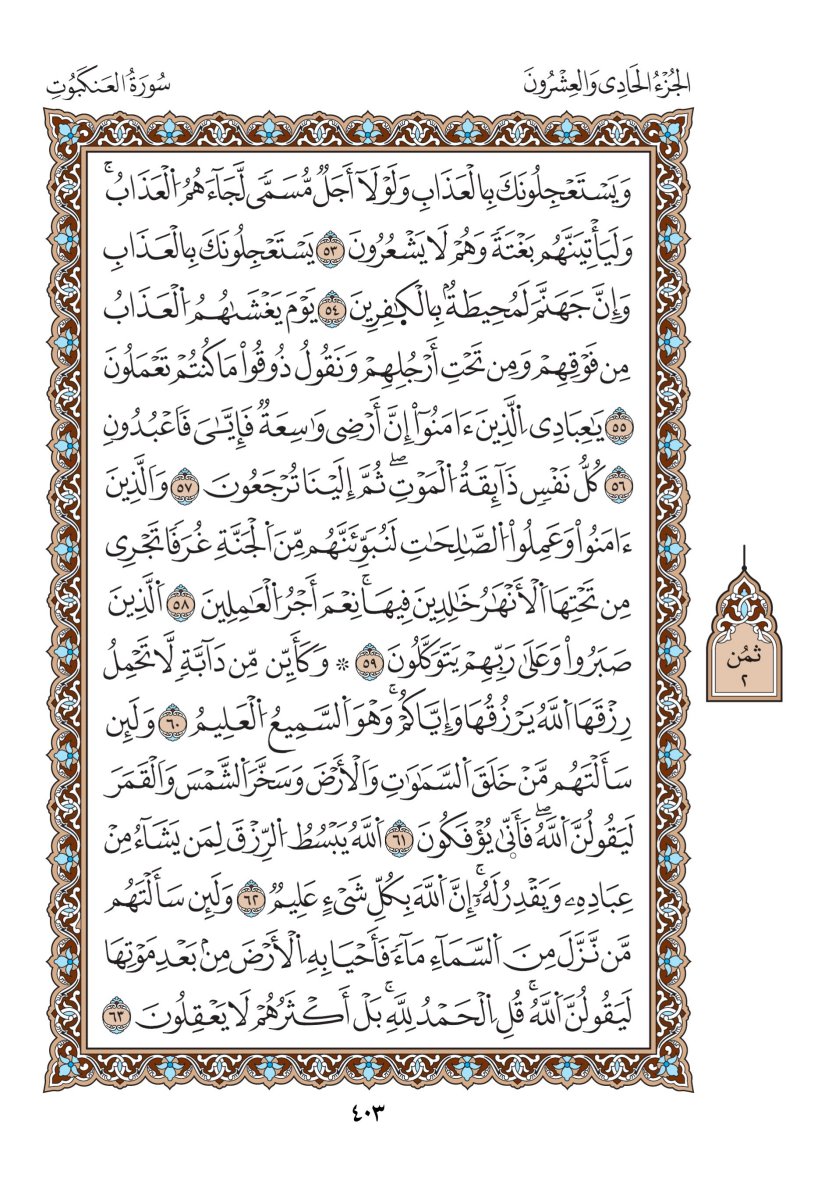 الجُزْءُ الحَادِى وَالعِشْرُونَ
سُورَةُ العَنكَبُوتِ
وَيَسْتَعْجِلُونَكَ بِالْعَذَابِ وَلَوْلَآ أَجَلٌ مُّسَمًّى لَّجَآءَهُمُ اُلْعَذَابُۚ
وَلَيَأْتِيَنَّهُم بَغْتَةً وَهُمْ لَا يَشْعُرُونَ ٥٣ يَسْتَعْجِلُونَكَ بِالْعَذَابِ
وَإِنَّ جَهَنَّمَ لَمُحِيطَةٌۢ بِالْكٰفِرِينَ ٥٤ يَوْمَ يَغْشَىٰهُمُ اُلْعَذَابُ
مِن فَوْقِهِمْ وَمِن تَحْتِ أَرْجُلِهِمْ وَنَقُولُ ذُوقُواْ مَا كُنتُمْ تَعْمَلُونَ
٥٥ يَٰعِبَادِى اِلَّذِينَ ءَامَنُوٓاْ إِنَّ أَرْضِى وَٰسِعَةٌ فَإِيَّٰىَ فَاعْبُدُونِ
٥٦ كُلُّ نَفْسٍ ذَآئِقَةُ اُلْمَوْتِۖ ثُمَّ إِلَيْنَا تُرْجَعُونَ ٥٧ وَالَّذِينَ
ءَامَنُواْ وَعَمِلُواْ اُلصَّٰلِحَٰتِ لَنُبَوِّئَنَّهُم مِّنَ اَلْجَنَّةِ غُرَفًا تَجْرِى
مِن تَحْتِهَا اَلْأَنْهَٰرُ خَٰلِدِينَ فِيهَاۚ نِعْمَ أَجْرُ اُلْعَٰمِلِينَ ٥٨ اَلَّذِينَ
صَبَرُواْ وَعَلَىٰ رَبِّهِمْ يَتَوَكَّلُونَ ٥٩ ۞ وَكَأَيِّن مِّن دَآبَّةٍ لَّا تَحْمِلُ
رِزْقَهَا اَللَّهُ يَرْزُقُهَا وَإِيَّاكُمْۚ وَهْوَ اَلسَّمِيعُ اُلْعَلِيمُ ٦٠ وَلَئِن
سَأَلْتَهُم مَّنْ خَلَقَ اَلسَّمَٰوَٰتِ وَالْأَرْضَ وَسَخَّرَ اَلشَّمْسَ وَالْقَمَرَ
لَيَقُولُنَّ اَللَّهُۖ فَأَنَّىٰ يُؤْفَكُونَ ٦١ اَللَّهُ يَبْسُطُ اُلرِّزْقَ لِمَن يَشَآءُ مِنْ
عِبَادِهِۦ وَيَقْدِرُ لَهُۥٓۚ إِنَّ اَللَّهَ بِكُلِّ شَىْءٍ عَلِيمٌ ٦٢ وَلَئِن سَأَلْتَهُم
مَّن نَّزَّلَ مِنَ اَلسَّمَآءِ مَآءً فَأَحْيَا بِهِ اِلْأَرْضَ مِنۢ بَعْدِ مَوْتِهَا
لَيَقُولُنَّ اَللَّهُۚ قُلِ اِلْحَمْدُ لِلَّهِۚ بَلْ أَكْثَرُهُمْ لَا يَعْقِلُونَ ٦٣
ثمُن
٢
٤٠٣